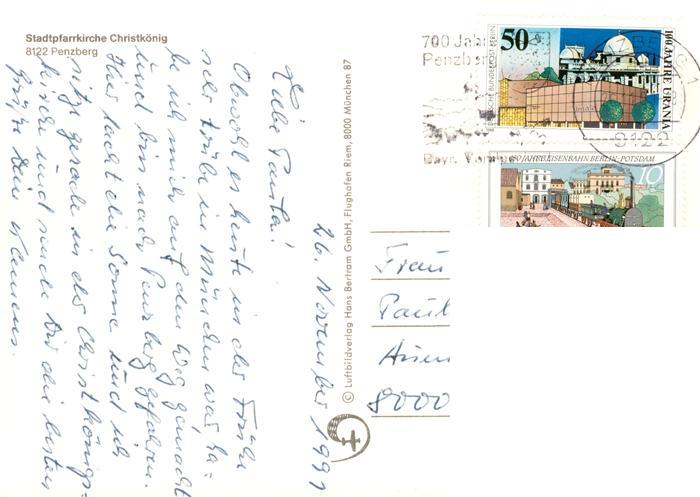 Stadtpfarrkirche Christkönig
8122 Penzberg
26. November 1991
Liebe Paula!
Obwohl es heute in der Früh
sehr trübe in München war, ha-
be ich mich auf den Weg gemacht
und bin nach Penzberg gefahren.
Hier lacht die Sonne und ich
sitze gerade in der Christkönigs-
kirche und sende Dir die besten
Grüße Dein Klemens.
© Luftbildverlag Hans Bertram GmbH, Flughafen Riem, 8000 München 87
700 Jah
Penzber
Bayr.
8122
50
DEUTSCHE BUNDESPOST BERLIN
100 JAHRE URANIA
150 JAHRE EISENBAHN BERLIN-POTSDAM
10
Frau
Paul
8000